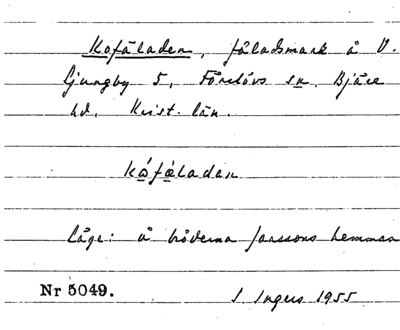 Kofäladen, fäladsmark å V.
Ljungby 5, Förslövs sn. Bjäre
hd, Krist. län.
kåfäladen
Läge: å bröderna Janssons hemman
Nr 5049.
I. Ingers 1955